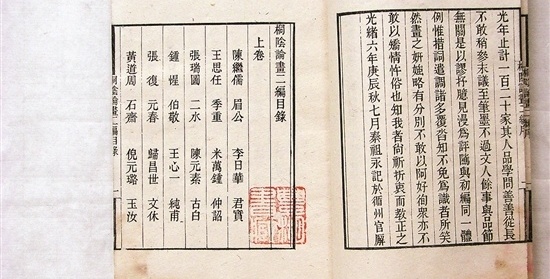 光年止計一百二十家其人品學問善善從長
不敢稍參末議至筆墨不過文人餘事與品節
無關是以謬抒臆見漫為評騭與初編同一體
例惟措詞遣調諸多覆沓知不免為識者所笑
然畫之妍媸略有分別不敢以阿好徇眾亦不
敢以矯情忤俗也知我者尚祈折衷而教正之
光緒六年庚辰秋七月秦祖永記於衢州官廨
桐陰論畫二編目錄
上卷
陳繼儒 眉公 李日華 君實
王思任 季重 米萬鍾 仲詔
張瑞圖 二水 陳元素 古白
鍾惺 伯敬 王心一 純甫
張復 元春 歸昌世 文休
黃道周 石齋 倪元璐 玉汝
桐陰論畫二編目錄 一